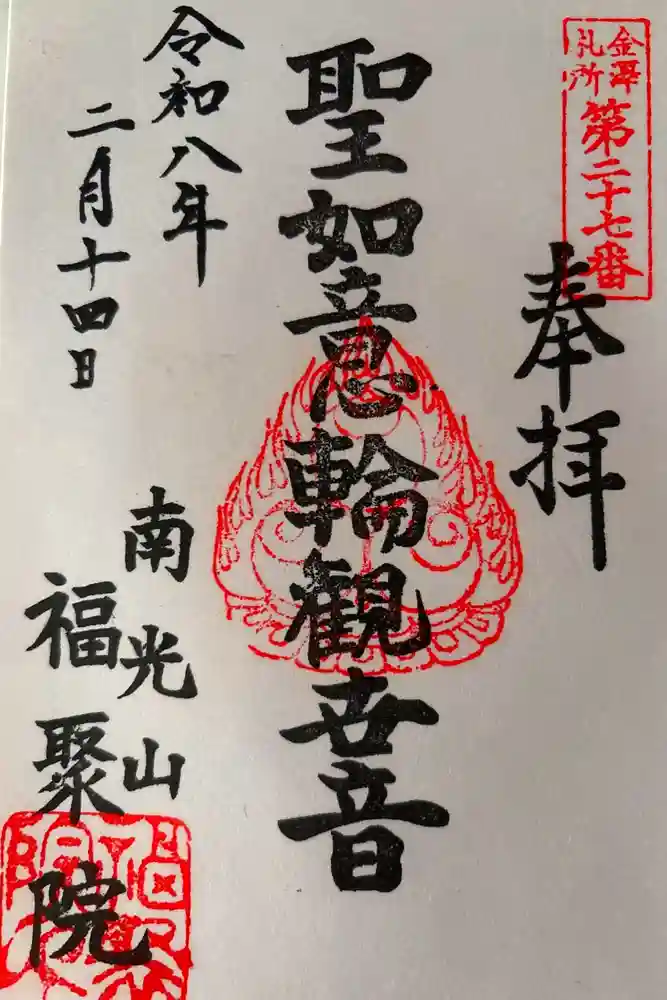 金澤
札所
第二十七番
奉拝
聖如意輪観世音
令和八年
二月十四日
南光山
福聚院